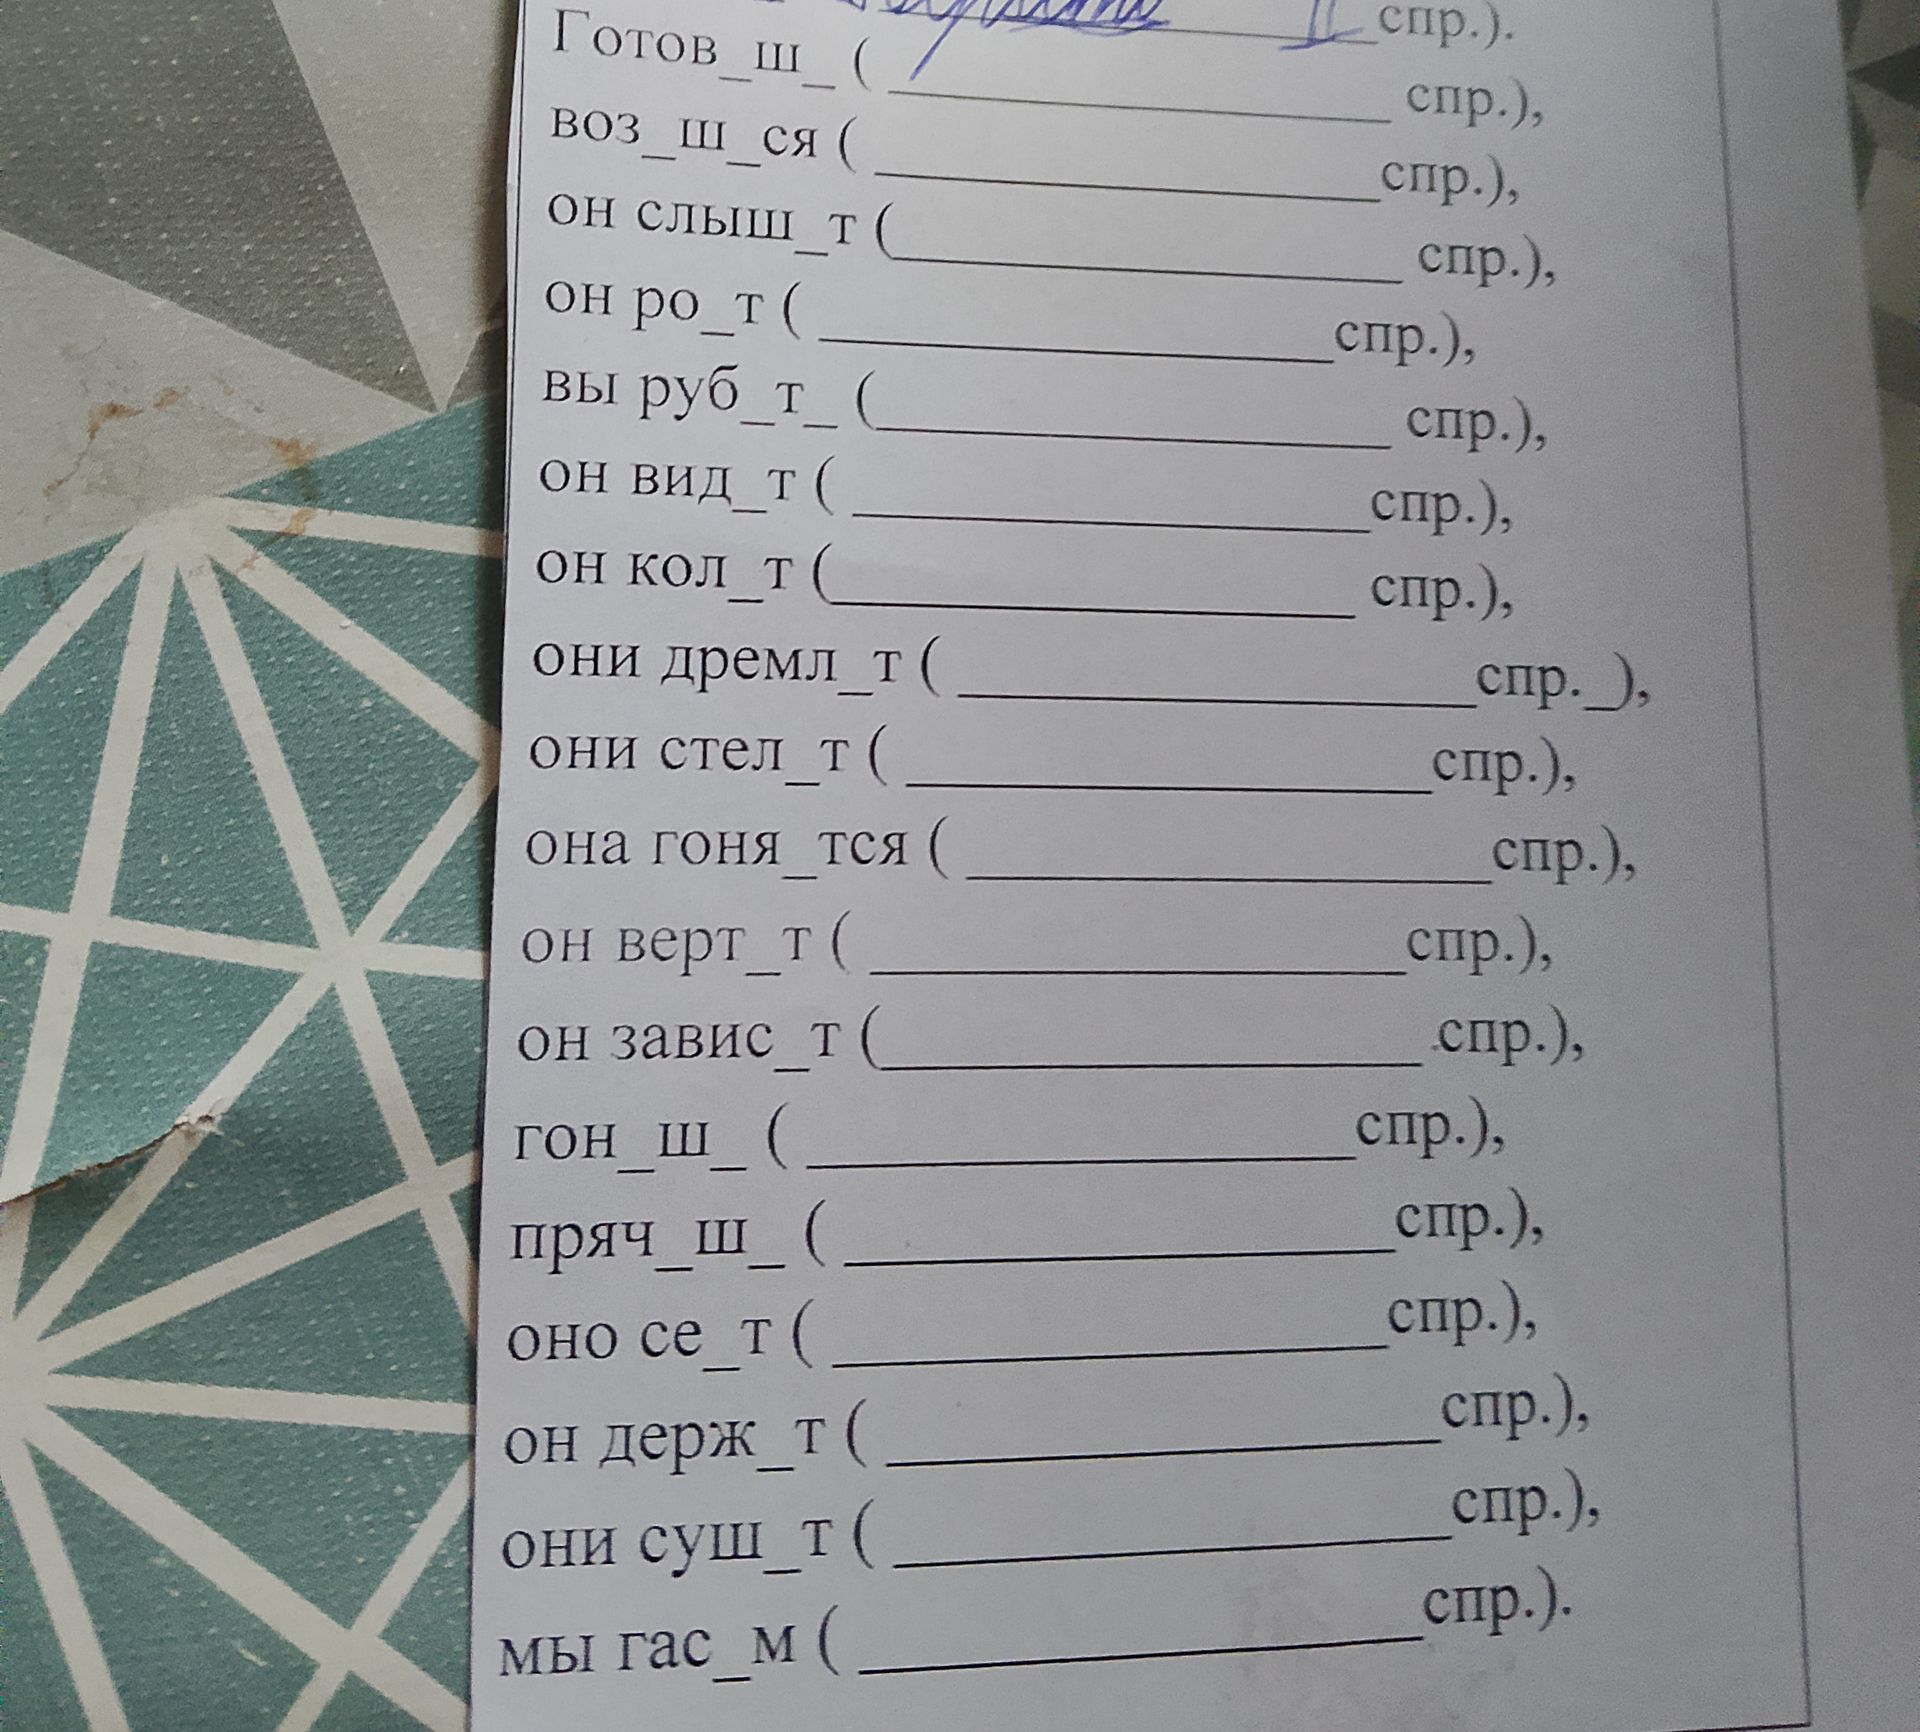 II спр.).
Готов_ш_ ( ____________ спр.),
воз_ш_ся ( ____________спр.),
он слыш_т (____________ спр.),
он ро_т ( ____________спр.),
вы руб_т_ (____________ спр.),
он вид_т ( ____________спр.),
он кол_т (____________ спр.),
они дремл_т ( ____________спр._),
они стел_т ( ____________спр.),
она гоня_тся ( ____________спр.),
он верт_т ( ____________спр.),
он завис_т (____________ спр.),
гон_ш_ ( ____________спр.),
пряч_ш_ ( ____________спр.),
оно се_т ( ____________спр.),
он держ_т ( ____________спр.),
они суш_т ( ____________спр.),
мы гас_м ( ____________спр.).